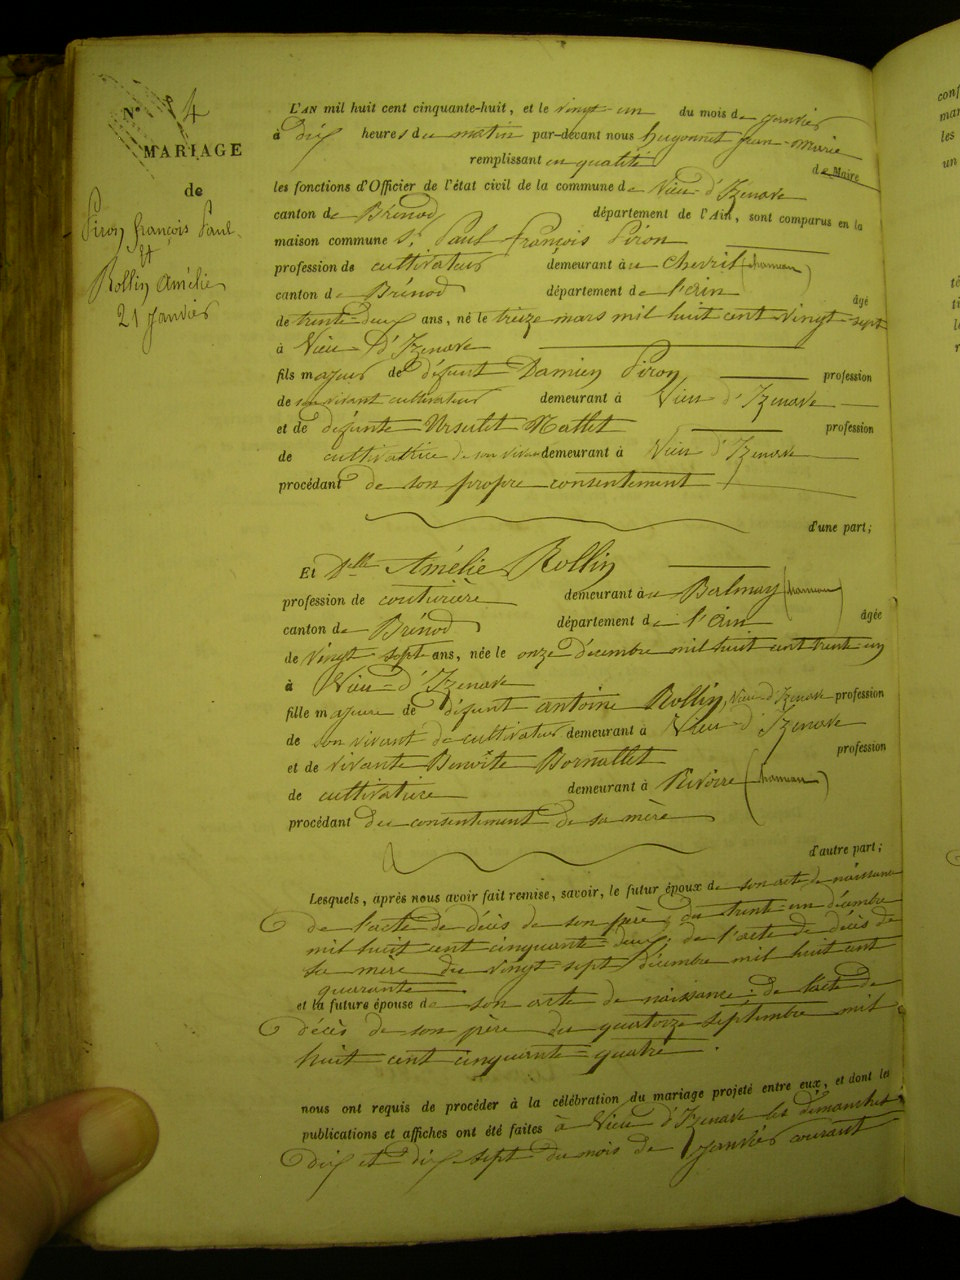 N° 4
MARIAGE
de
Piron françois Paul
Et
Rollin Amélie
21 Janvier
L'AN mil huit cent cinquante-huit, et le vingt-un du mois de janvier
à dix heures du matin par-devant nous hugonnet jean-Marie
remplissant en qualité de Maire
les fonctions d'Officier de l'état civil de la commune de Vieu-d'Izenave
canton de Brénod département de l'Ain, sont comparus en la
maison commune Sr. Paul françois Piron
profession de cultivateur demeurant à Chevril (hameau)
canton de Brénod département de l'ain âgé
de trente deux ans, né le treize mars mil huit cent vingt-sept
à Vieu-D'Izenave
fils majeur de défunt Damien Piron profession
de son vivant cultivateur demeurant à Vieu-d'Izenave
et de défunte Ursulet Mathet profession
de cultivatrice de son vivant demeurant à Vieu d'Izenave
procédant de son propre consentement
d'une part;
Et Dlle Amélie Rollin
profession de couturière demeurant à Balmay (hameau)
canton de Brénod département de l'ain âgée
de vingt-sept ans, née le onze décembre mil huit cent trente un
à Vieu-d'Izenave
fille majeure de défunt antoine Rollin, Vieu-d'Izenave profession
de son vivant de cultivateur demeurant à Vieu-d'Izenave
et de vivante Benoîte Bornallet profession
de cultivatrice demeurant à Rivoire (hameau)
procédant du consentement de sa mère
d'autre part;
Lesquels, après nous avoir fait remise, savoir, le futur époux de son acte de naissance
de l'acte de décès de son père, du trente-un décembre
mil huit cent cinquante-deux; de l'acte de décès de
sa mère du vingt-sept décembre mil huit cent
quarante
et la future épouse de son acte de naissance: de l'acte de
décès de son père du quatorze septembre mil
huit cent cinquante-quatre.
nous ont requis de procéder à la célébration du mariage projeté entre eux, et dont les
publications et affiches ont été faites à Vieu d'Izenave les dimanches
dix et dix-sept du mois de janvier courant